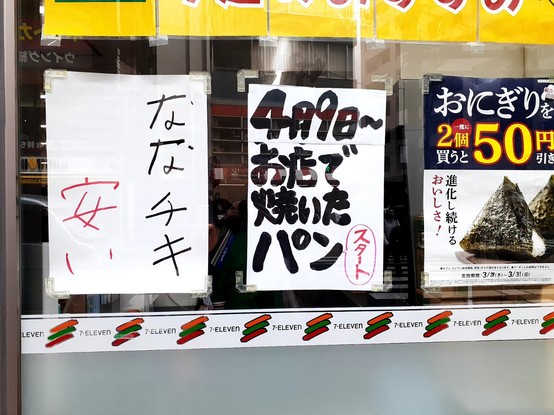 ななチキ
安い
4月9日～
お店で
焼いた
パン
スタート
おにぎりを
一度に
2個
買うと
50円
引き
進化し続ける
おいしさ！
3/31(日)
7-ELEVEN 7-ELEVEN 7-ELEVEN 7-ELEVEN 7-ELEVEN 7-ELEVEN 7-ELEVEN 7-ELEVEN 7-ELEVEN